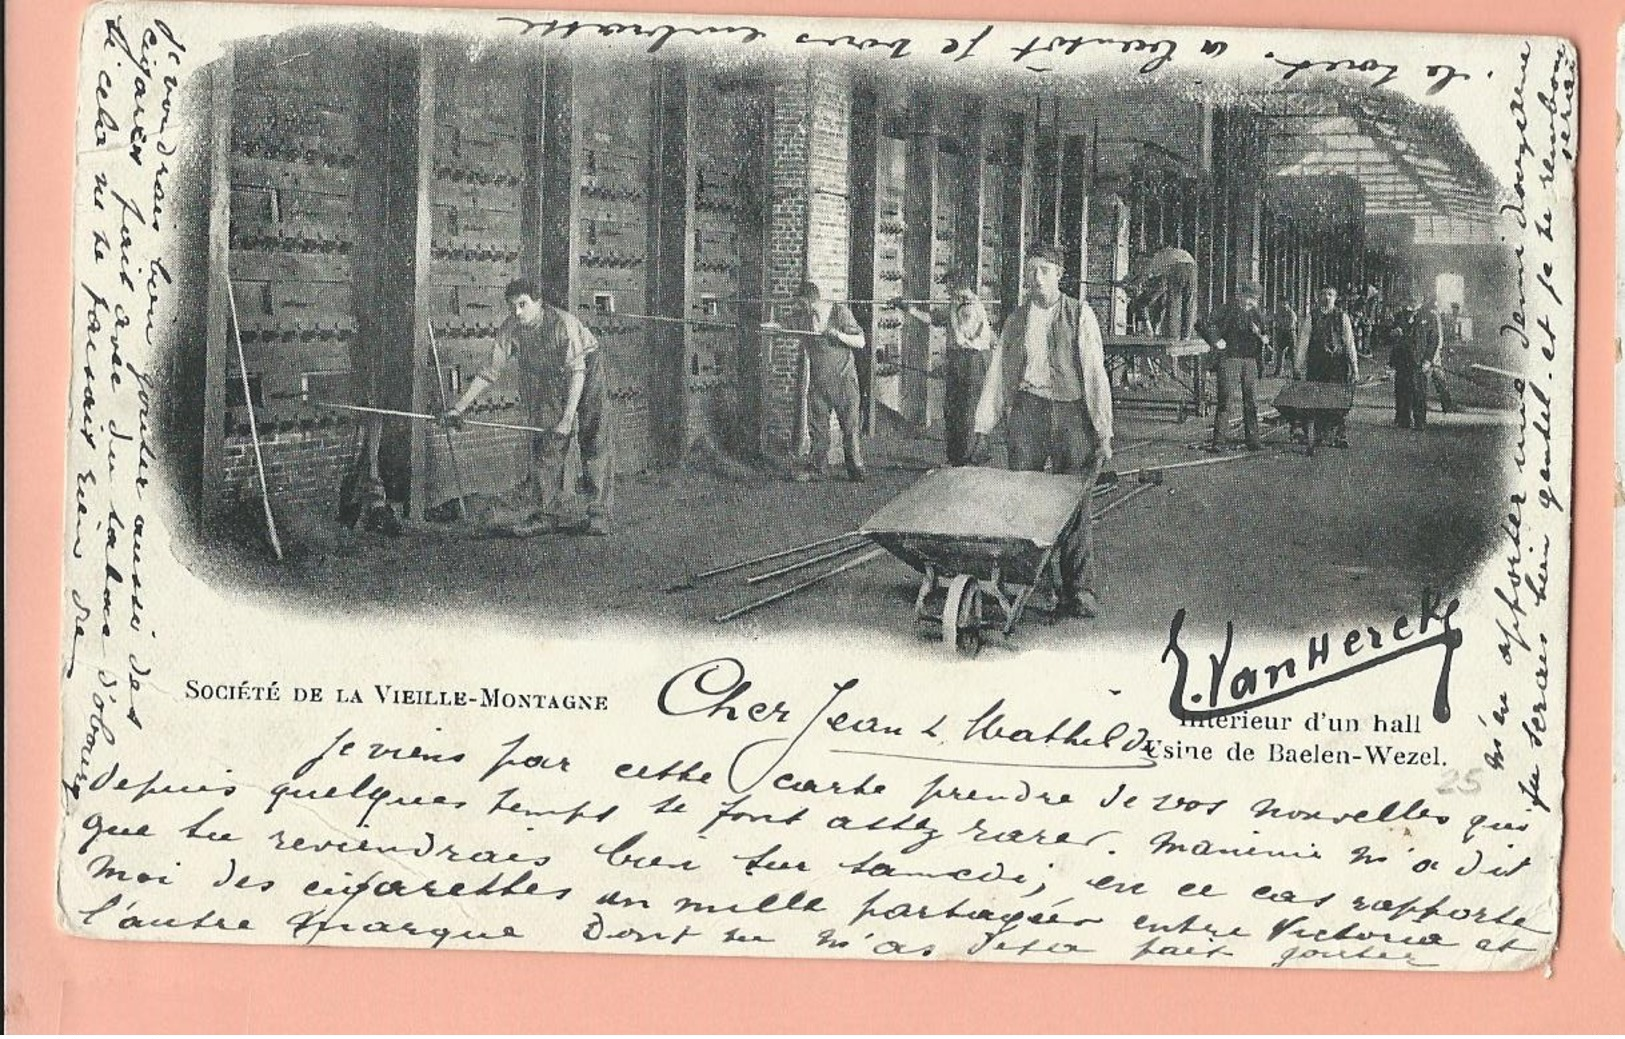 SOCIÉTÉ DE LA VIEILLE-MONTAGNE
Intérieur d'un hall
Usine de Baelen-Wezel.
E. Van Herck
25
Cher Jean & Mathilde
Je viens par cette carte prendre de vos nouvelles qui
depuis quelques temps se font assez rares. Maninie m'a dit
que tu reviendrais bien sur samedi; en ce cas rapporte
moi des cigarettes un mille partagées entre Victoria et
l'autre marque Dont tu m'as déjà fait gouter
Je voudrais bien gouter aussi des
cigares fait avec du tabac d'obourg
si cela ne te faisait rien de
m'en apporter une demi douzaine
tu serais bien gentil. et je te rembourserai
le tout. a bientôt je vous embrasse